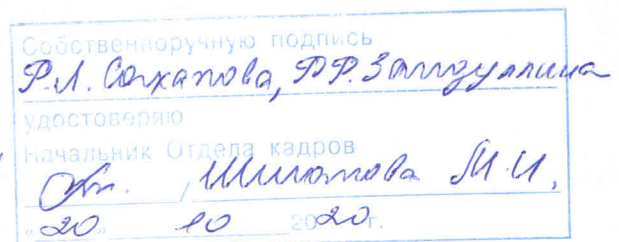 Собственноручную подпись
Р.Л. Сахапова, Р.Р. Загидуллина
удостоверяю
Начальник Отдела кадров
М.И.
«20» 10 2020г.